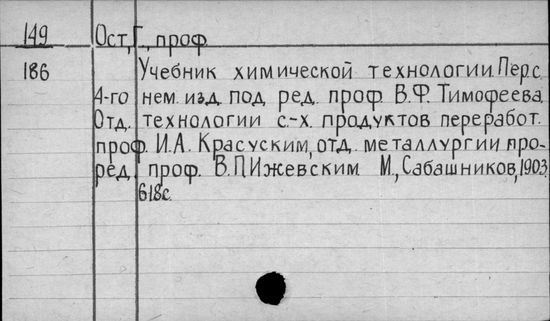 149 Ост, Г., проф.
186 Учебник химической технологии. Пер. с
4-го нем. изд. под ред. проф. В.Ф. Тимофеева.
Отд. технологии с.-х. продуктов переработ.
проф. И.А. Красуским, отд. металлургии про-
ред. проф. В.П. Ижевским М., Сабашников, 1903,
618с.